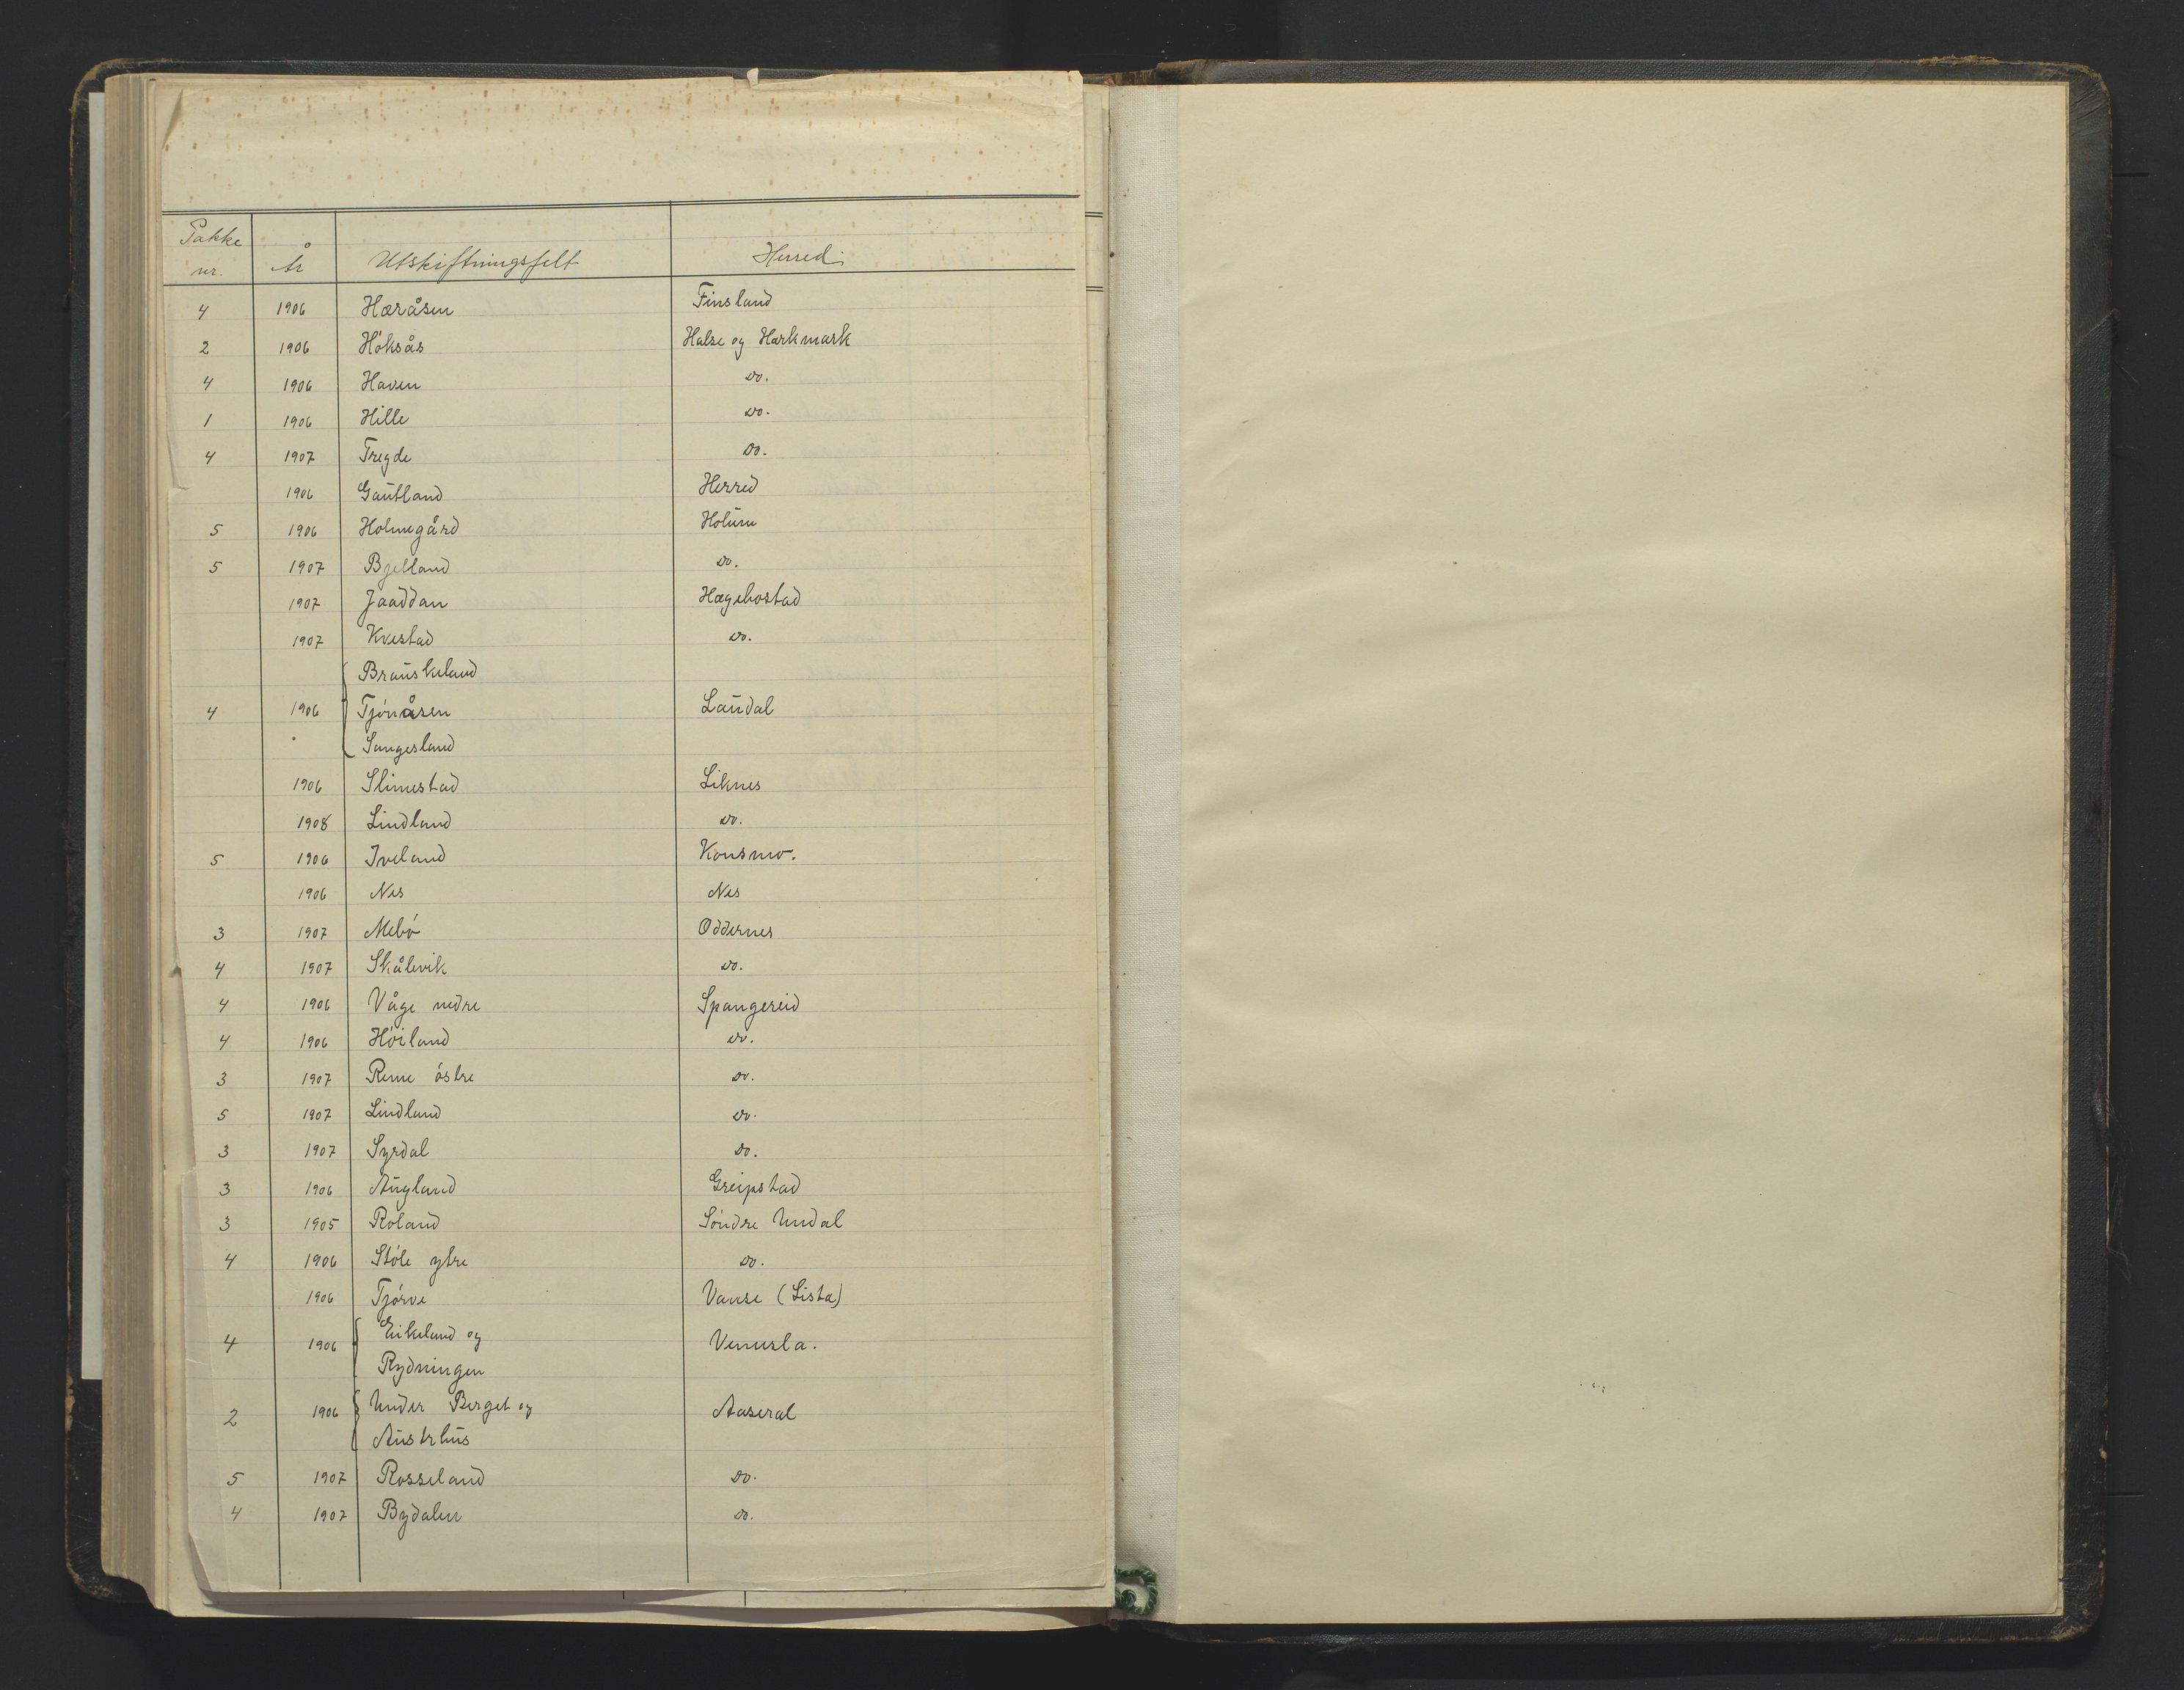 Pakke nr. År Utskiftningsfelt Herred:
4 1906 Haråsen Finsland
2 1906 Höksås Halse og Harkmark
4 1906 Haven do.
1 1906 Hille do.
4 1907 Tregde do.
1906 Gautland Herred
5 1906 Holmegård Holum
5 1907 Bjelland do.
1907 Jaaddan Hægebostad
1907 Kvestad do.
Brauskeland
4 1906 Tjönnåsen Laudal
Sangesland
1906 Slimestad Liknes
1908 Lindland do.
5 1906 Iveland Konsmo.
1906 Nes Nes
3 1907 Mebö Oddernes
4 1907 Skålevik do.
4 1906 Våge nedre Spangereid
4 1906 Höiland do.
3 1907 Reme östre do.
5 1907 Lindland do.
3 1907 Syrdal do.
3 1906 Augland Greipstad
3 1905 Roland Söndre Undal
4 1906 Stöle ytre do.
1906 Tjörve Vanse (Lista)
4 1906 Eikeland og Vennesla.
Rydningen
2 1906 Under Berget og Aaseral
Austrhus
5 1907 Rosseland do.
4 1907 Bydalen do.